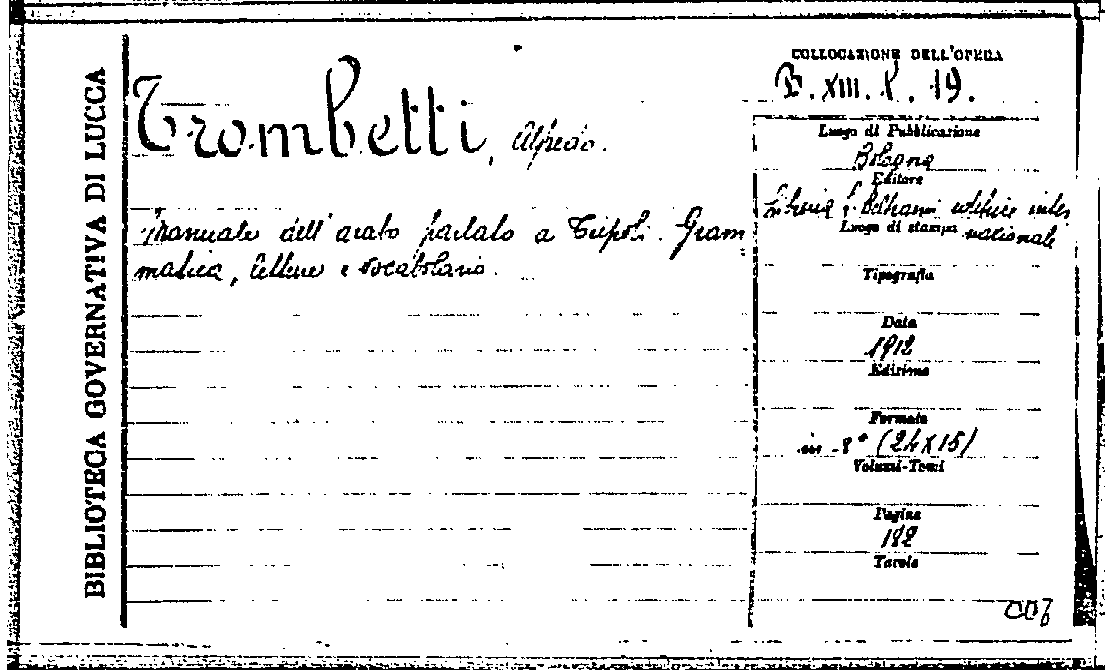 BIBLIOTECA GOVERNATIVA DI LUCCA
Trombetti, Alfredo.
Manuale dell'arabo parlato a Tripoli. Gram
matica, letture e vocabolario.
COLLOCAZIONE DELL'OPERA
B. XIII. 19.
Luogo di Pubblicazione
Bologna
Editore
Libreria L. Beltrami editrice inter
Luogo di stampa
nazionale
Tipografia
Data
1912
Edizione
Formato
in-8° (24X15)
Volumi-Tomi
Pagine
182
Tavole